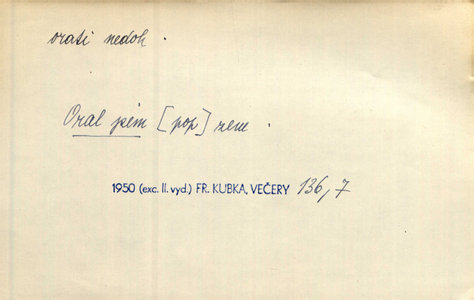 orati nedok.
Oral jsem [pop] zem.
1950 (exc. II. vyd.) FR. KUBKA, VEČERY 136, 7